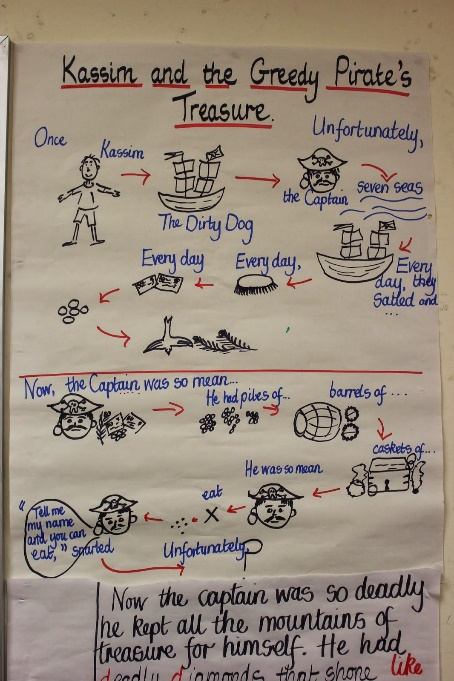 Kassim and the Greedy Pirate's
Treasure.
Once
Kassim
The Dirty Dog
Unfortunately,
the Captain
seven seas
Every
day, they
Sailed and
...
Every day,
Every day
Now, the Captain was so mean...
He had piles of...
barrels of ...
caskets of...
He was so mean
eat
X
"Tell me
my name
and you can
eat," snarled
Unfortunately,
Now the captain was so deadly
he kept all the mountains of
treasure for himself. He had
deadly diamonds that shone like